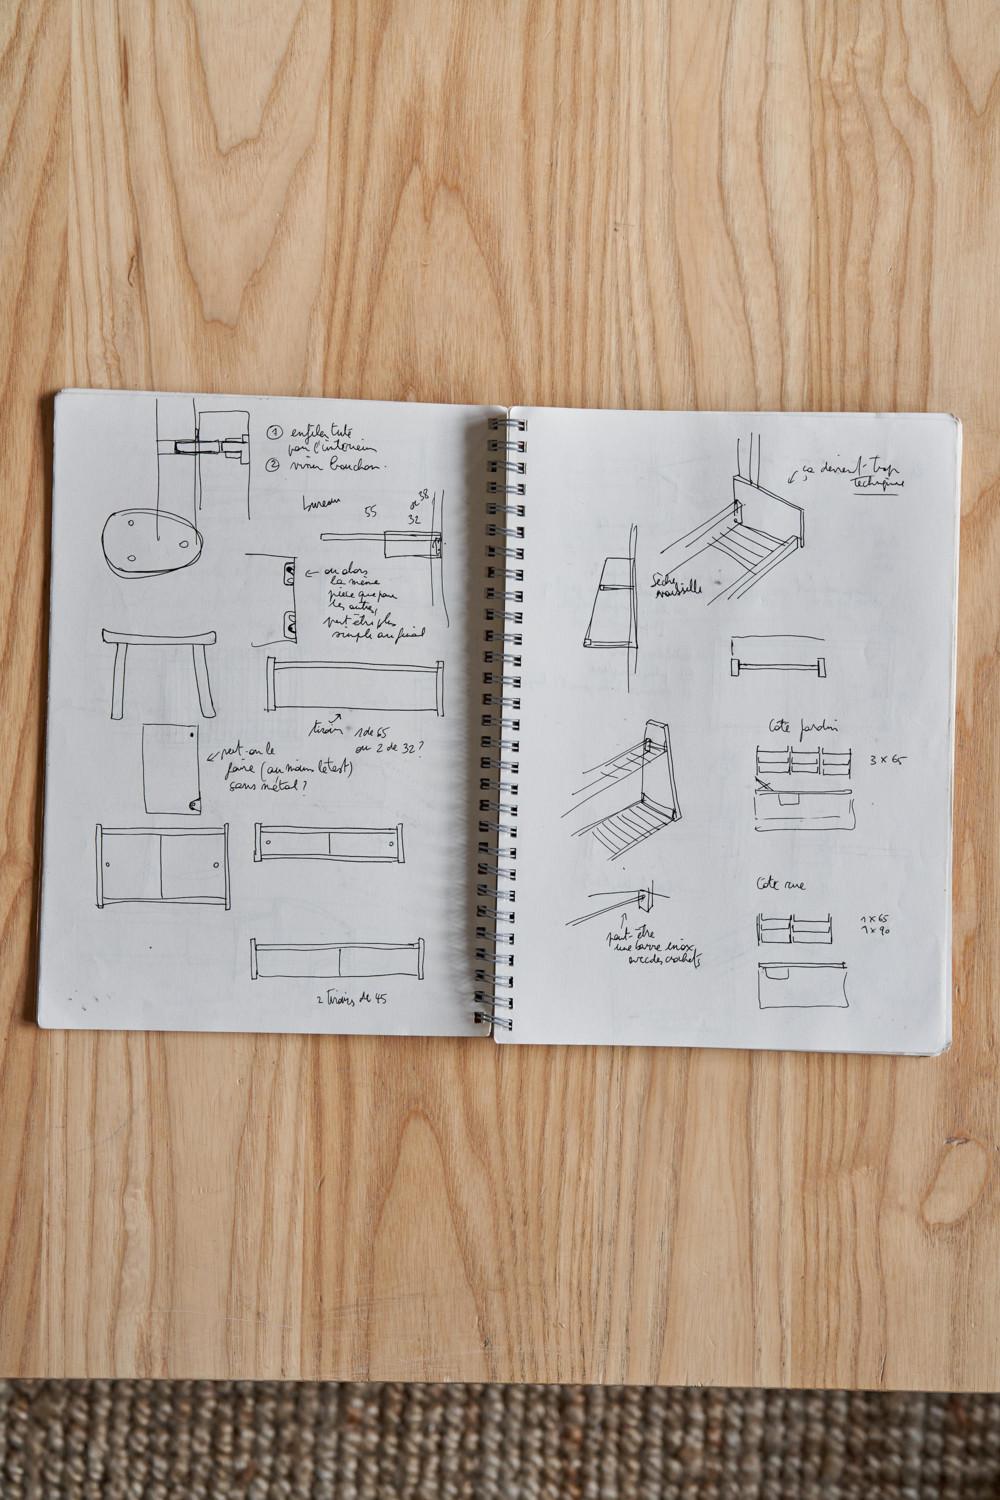 ① enfiler tube
par l'intérieur
② visser bouchon.
bureau
55
38
ou
32
← ou alors
la même
pièce que pour
les autres,
peut être plus
simple au final
tiroir
1 de 65
ou 2 de 32?
peut-on le
faire (au moins le test)
sans métal?
2 tiroirs de 45
ça devient trop
technique
Sèche
vaisselle
Côté jardin
3 x 65
Côté rue
1 x 65
1 x 90
peut-être
une barre inox
avec des crochets